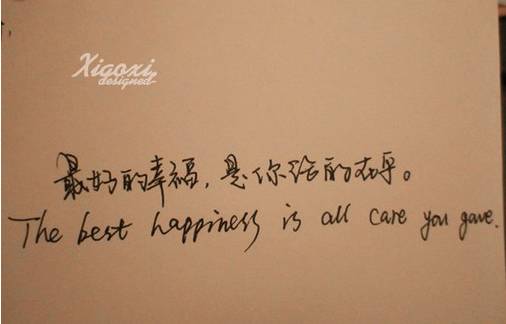 Xiaoxi
designed
最好的幸福，是你给的在乎。
The best happiness is all care you gave.